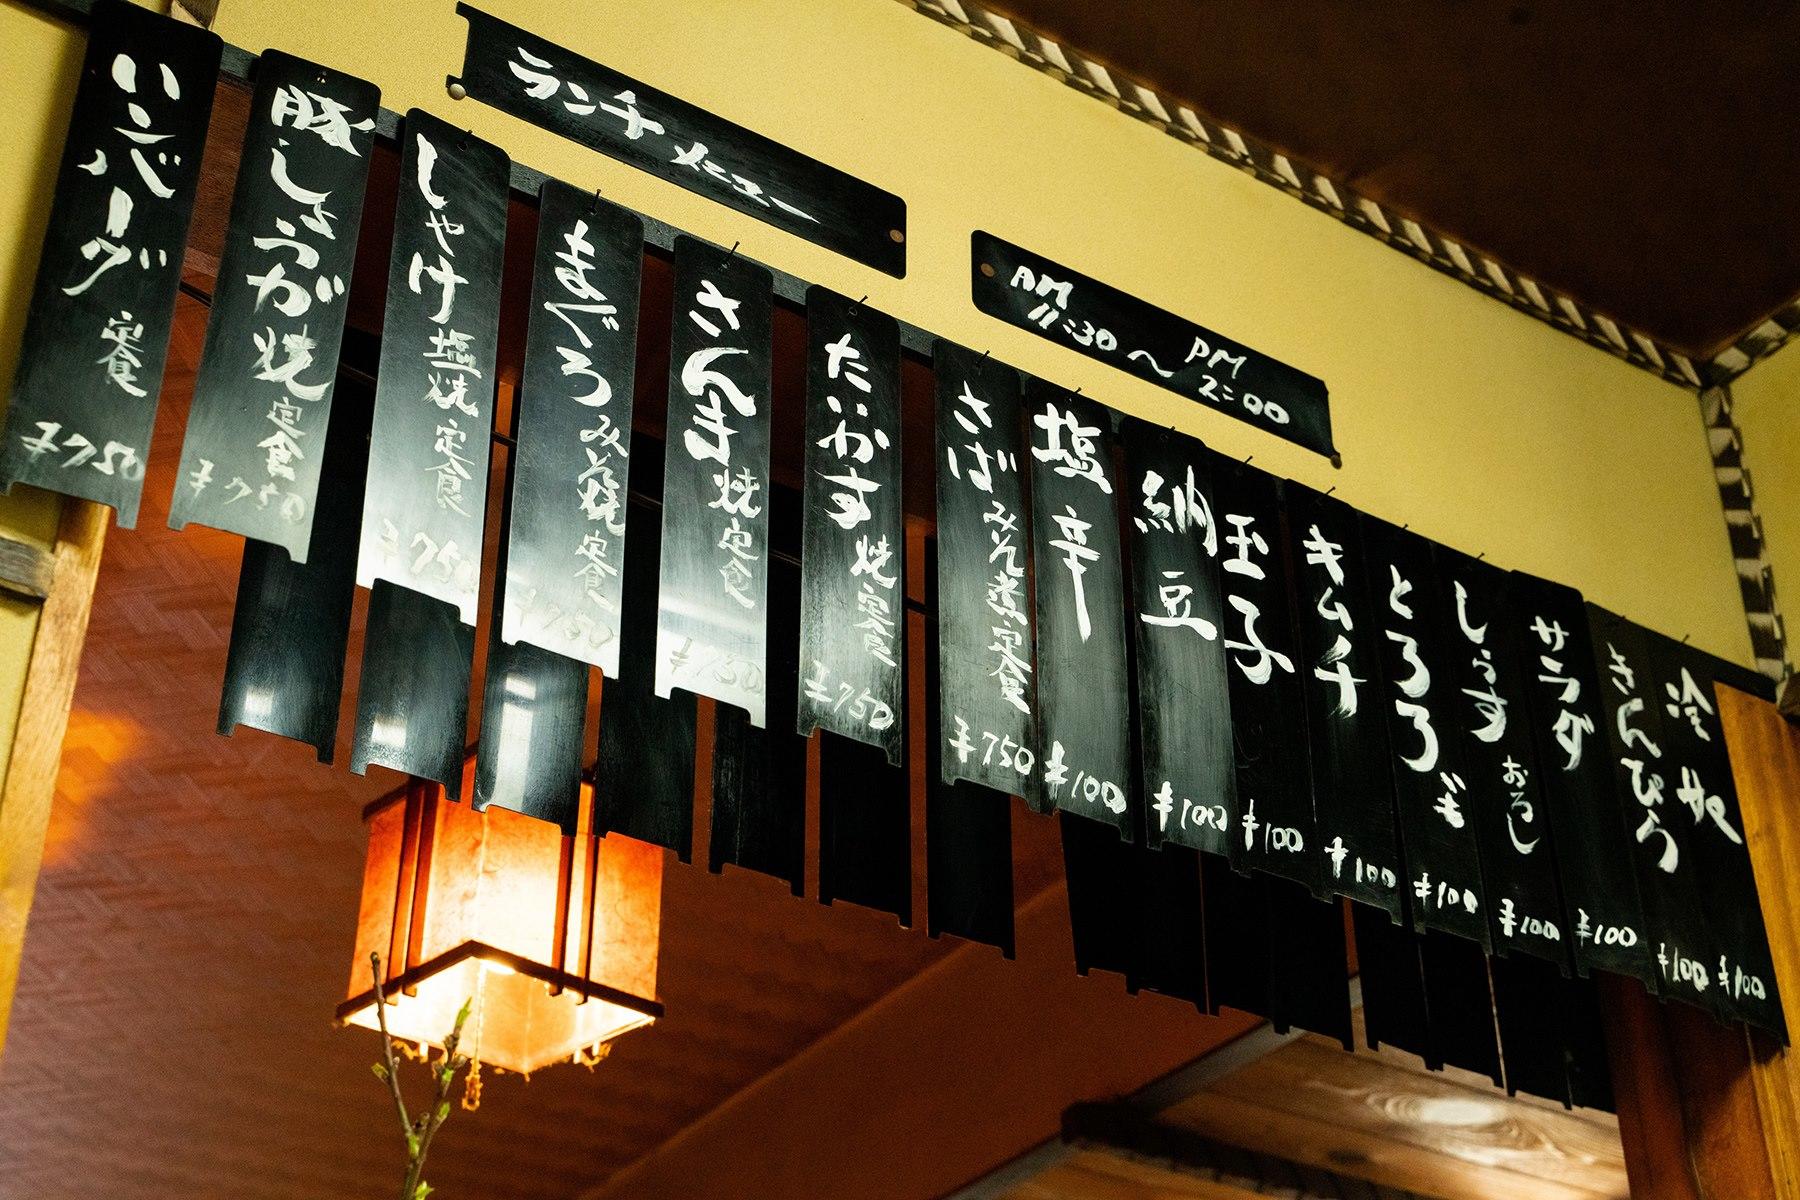 ランチメニュー
AM 11:30〜PM 2:00
ハンバーグ定食 ¥750
豚しょうが焼定食 ¥750
しゃけ塩焼定食 ¥750
まぐろみそ焼定食 ¥750
さんま焼定食 ¥750
たいかす焼定食 ¥750
さばみそ煮定食 ¥750
塩辛 ¥100
納豆 ¥100
玉子 ¥100
キムチ ¥100
とろろ芋 ¥100
しらすおろし ¥100
サラダ ¥100
きんぴら ¥100
冷奴 ¥100